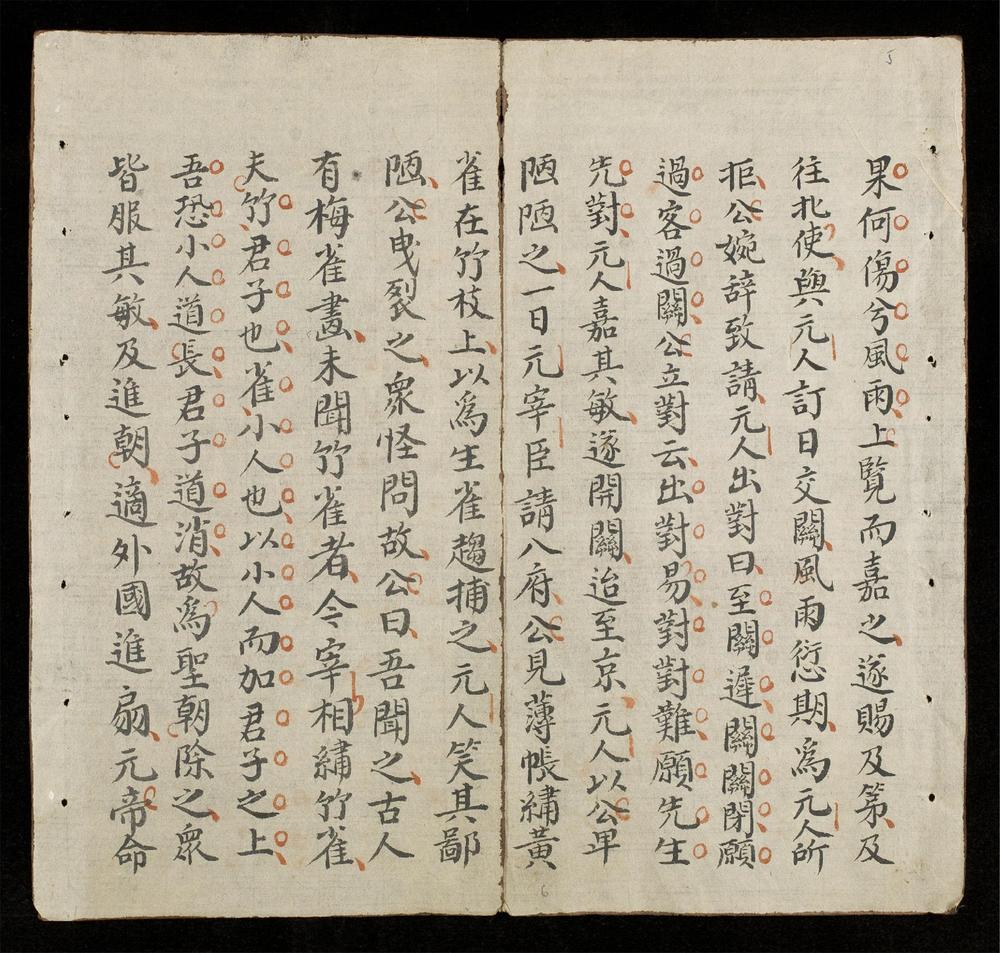 5
果何傷兮風雨上覽而嘉之遂賜及第及
往北使與元人訂日交關風雨愆期為元人所
拒公婉辞致請元人出對曰至關遲關關閉願
過客過關公立對云出對易對對難願先生
先對元人嘉其敏遂開關迨至京元人以公卑
陋陋之一日元宰臣請入府公見薄帳繡黃
雀在竹枝上以為生雀趨捕之元人笑其鄙
陋公曳裂之衆怪問故公曰吾聞之古人
有梅雀畫未聞竹雀者今宰相繡竹雀
夫竹君子也雀小人也以小人而加君子之上
吾恐小人道長君子道消故為聖朝除之衆
皆服其敏及進朝適外國進扇元帝命
6